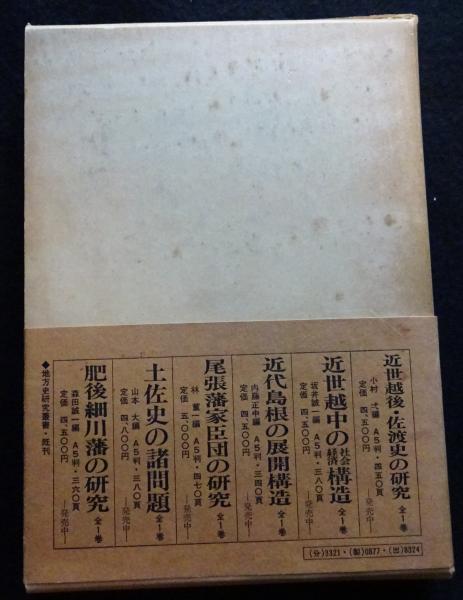 近世越後・佐渡史の研究 全1巻
小村 弌編 A5判・四五〇頁
定価 四、五〇〇円 ―発売中―
近世越中の社会経済構造 全1巻
坂井誠一編 A5判・三八〇頁
定価 四、五〇〇円 ―発売中―
近代島根の展開構造 全1巻
内藤正中編 A5判・三四〇頁
定価 四、五〇〇円 ―発売中―
尾張藩家臣団の研究 全1巻
林 董一編 A5判・四七〇頁
定価 五、〇〇〇円 ―発売中―
土佐史の諸問題 全1巻
山本 大編 A5判・三八〇頁
定価 四、八〇〇円 ―発売中―
肥後細川藩の研究 全1巻
森田誠一編 A5判・三六〇頁
定価 四、五〇〇円 ―発売中―
◆地方史研究叢書・既刊
(分)3321・(製)0877・(出)8324